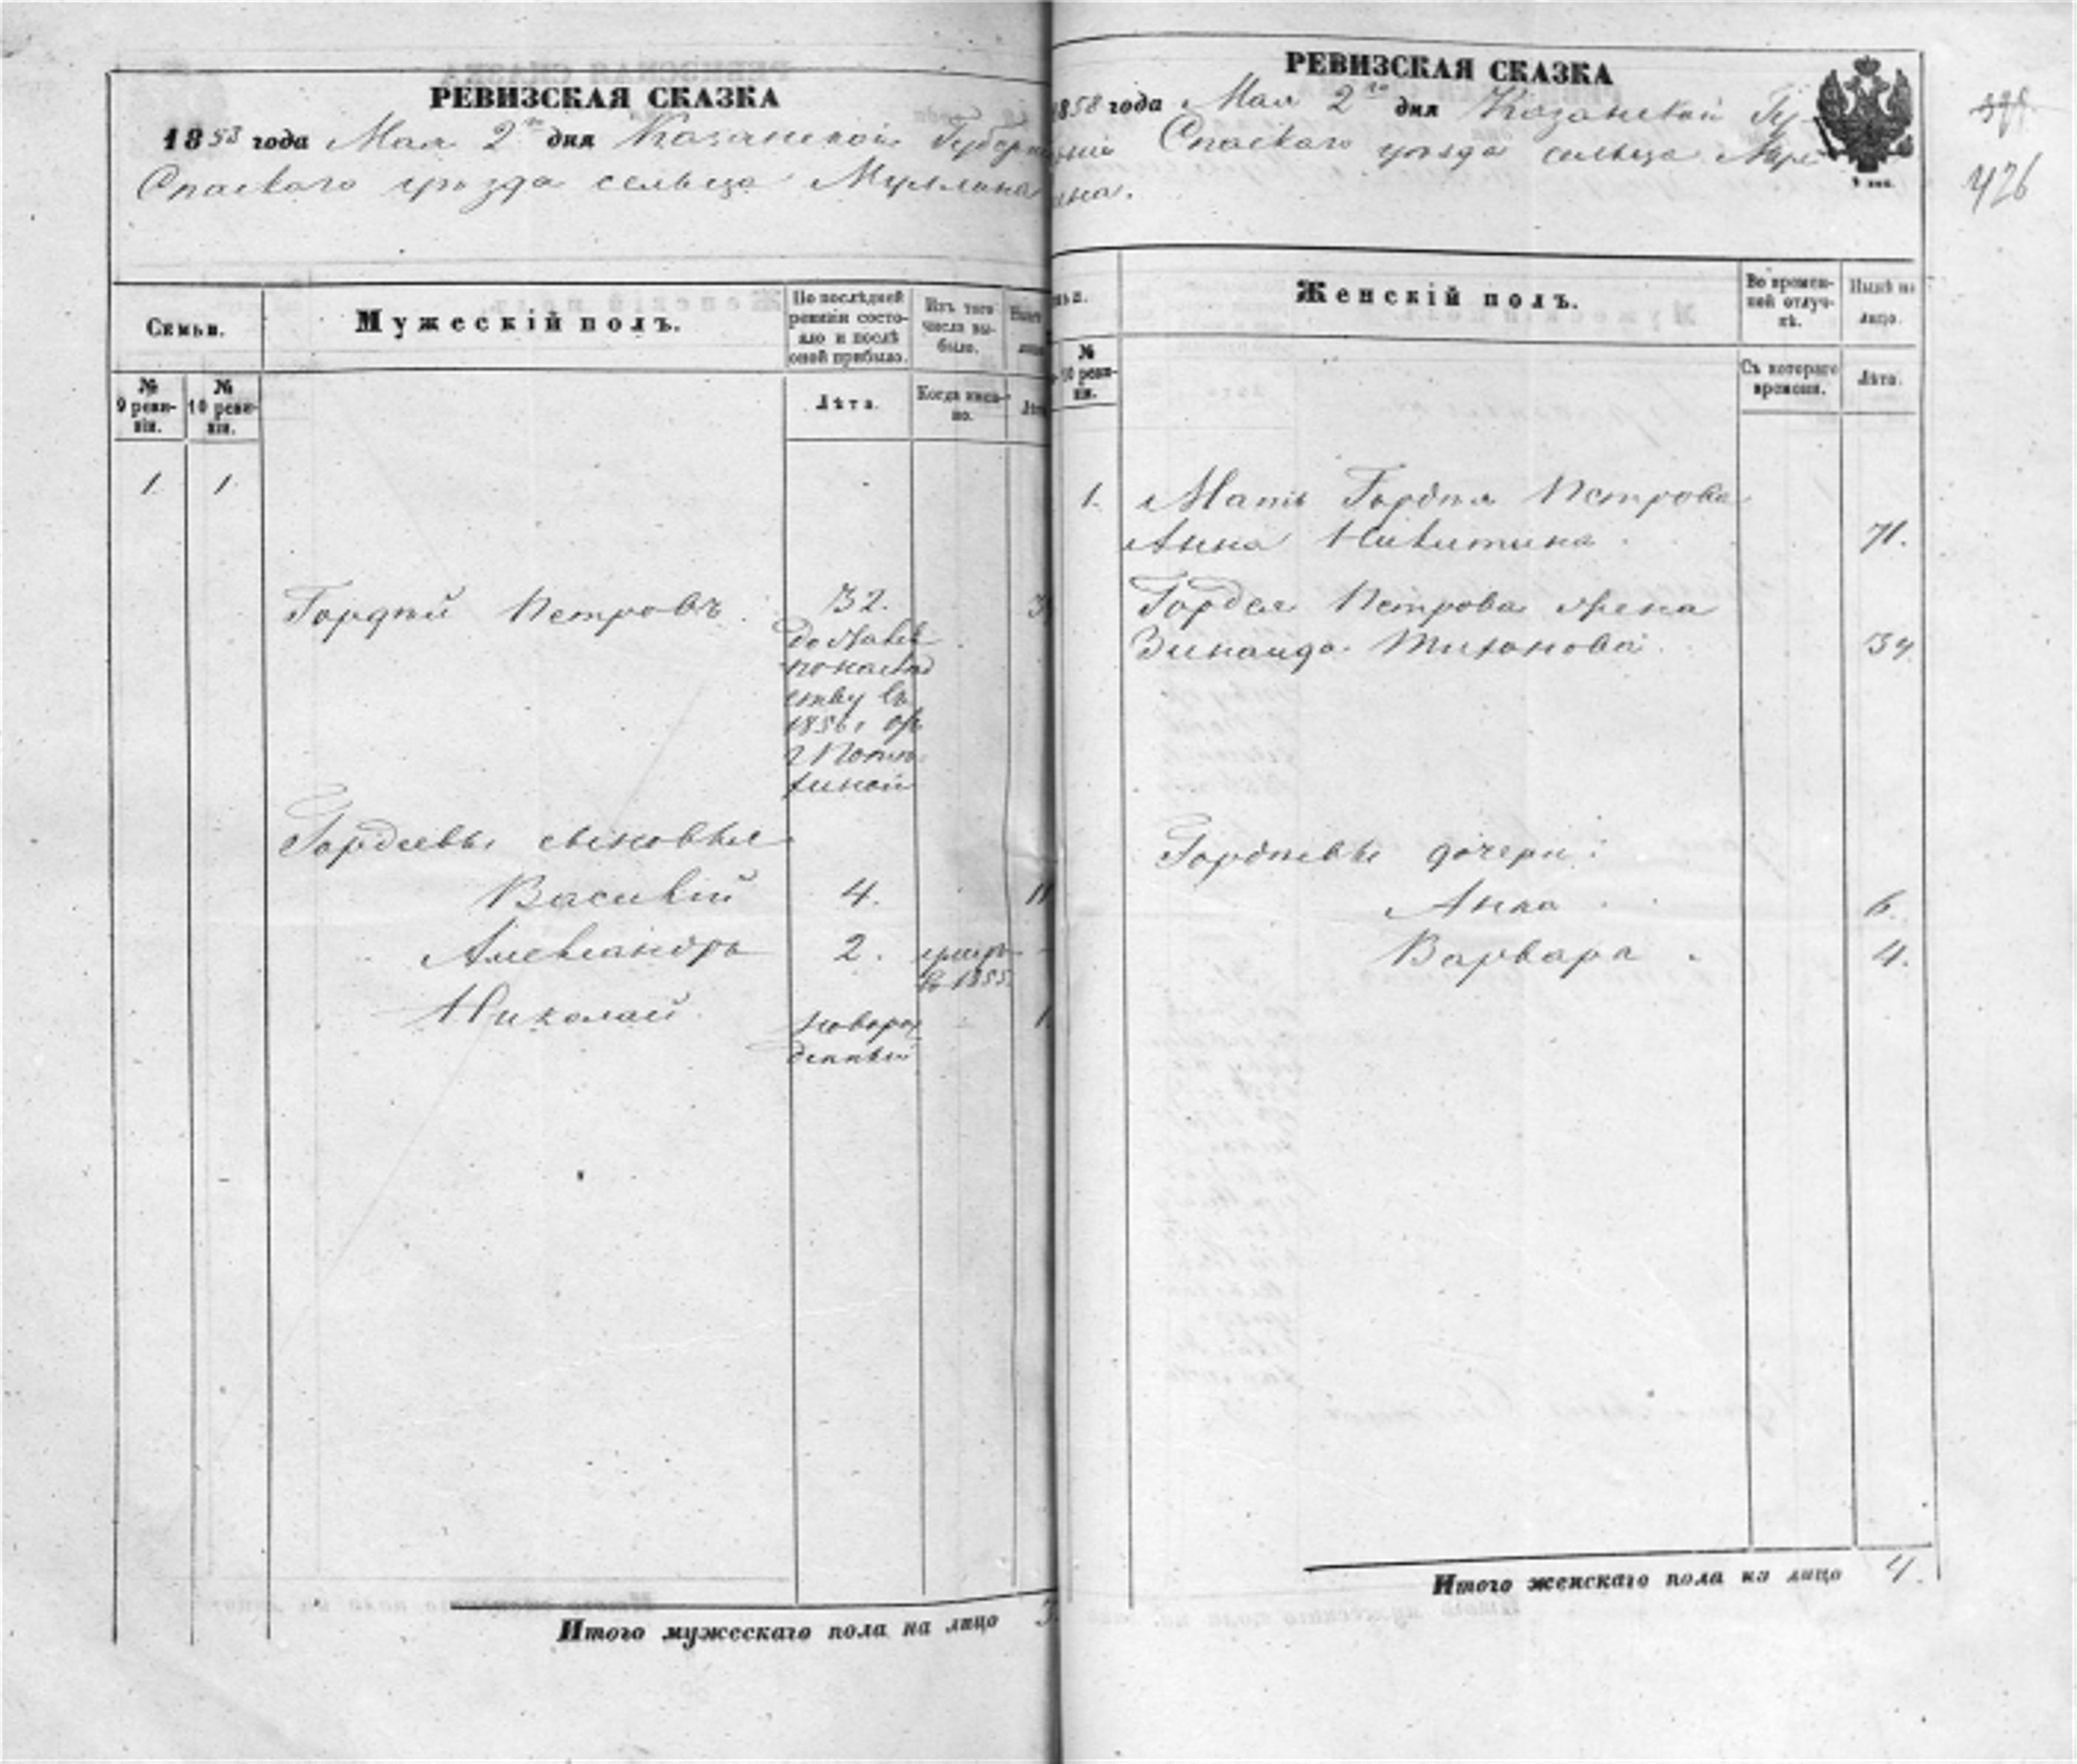 РЕВИЗСКАЯ СКАЗКА
1858 года Мая 2го дня Казанской Губер
Спаскаго уѣзда сельца Муллина
Семьи.
Мужескій полъ.
По послѣдней
ревизіи состо-
яло и послѣ
оной прибыло.
Изъ того
числа вы-
было.
№
9 реви-
зіи.
№
10 реви-
зіи.
Лѣта.
Когда имен-
но.
1
1
Гордѣй Петровъ
32.
3
достался
по наслѣд
ству въ
1856 г от
Гордѣевы сыновья
Василий
4.
11
Александръ
2.
умеръ
въ 1855
Николай
новорож
денный
1
Итого мужескаго пола на лицо 3.
РЕВИЗСКАЯ СКАЗКА
1858 года Мая 2го дня Казанской Гу-
бернiи Спаскаго уѣзда сельца
ина.
426
Женскій полъ.
Во времен-
ной отлуч-
кѣ.
Нынѣ на
лицо.
№
10 реви-
зіи.
Съ котораго
времени.
Лѣта.
1.
Мать Гордѣя Петрова
Анна Никитина
71.
Гордея Петрова жена
Зинаида Тиханова
34
Гордѣевы дочери:
Анна
6.
Варвара
4.
Итого женскаго пола на лицо 4.